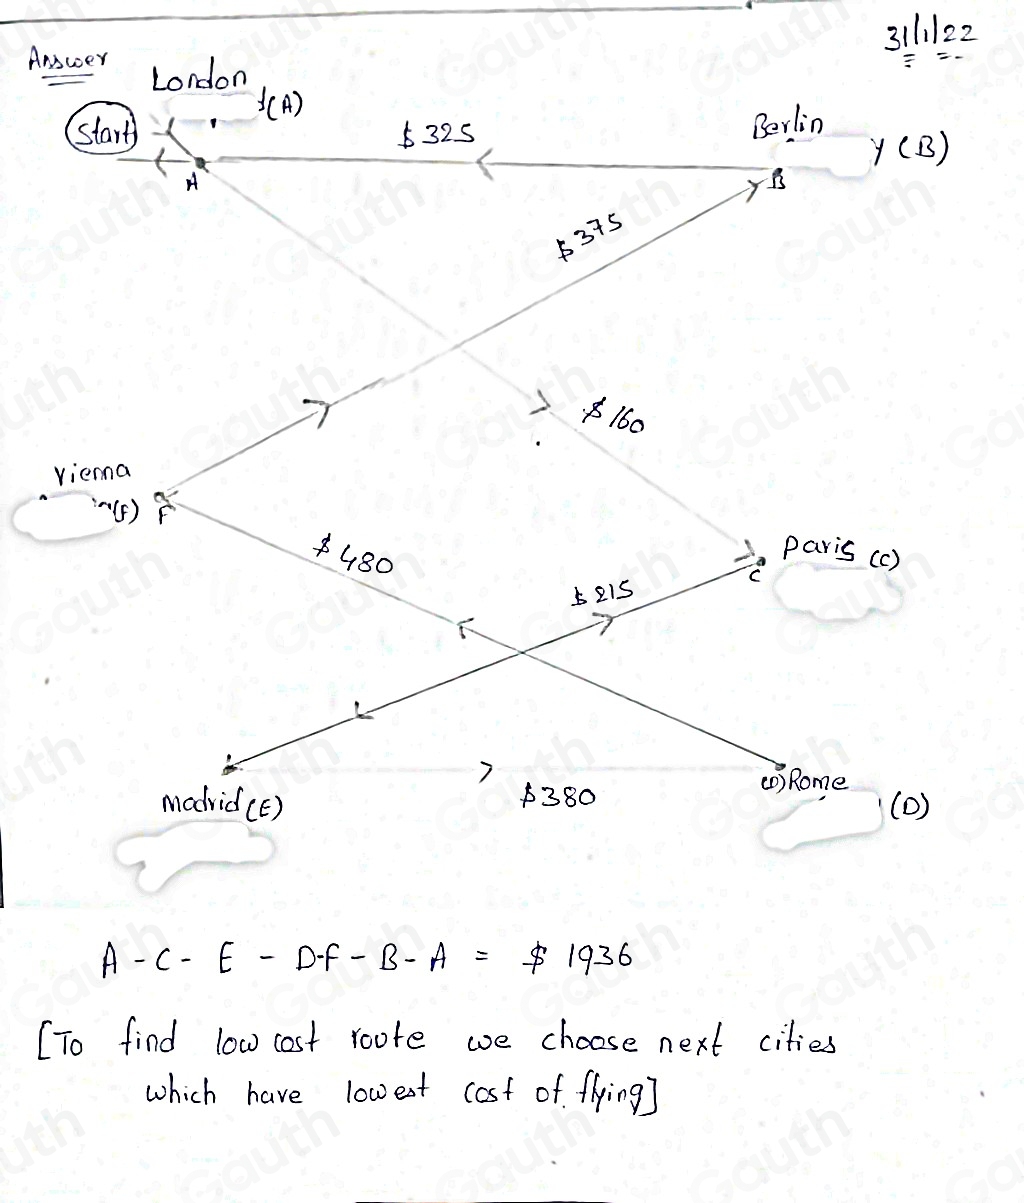 31/1/22
Answer
London
(A)
Start
$325
Berlin
y (B)
A
B
$375
$160
Vienna
(F)
F
$480
Paris (C)
C
$215
Madrid (E)
$380
(D) Rome
(D)
A - C - E - D-F - B - A = $ 1936
[To find low cost route we choose next cities
which have lowest cost of flying]